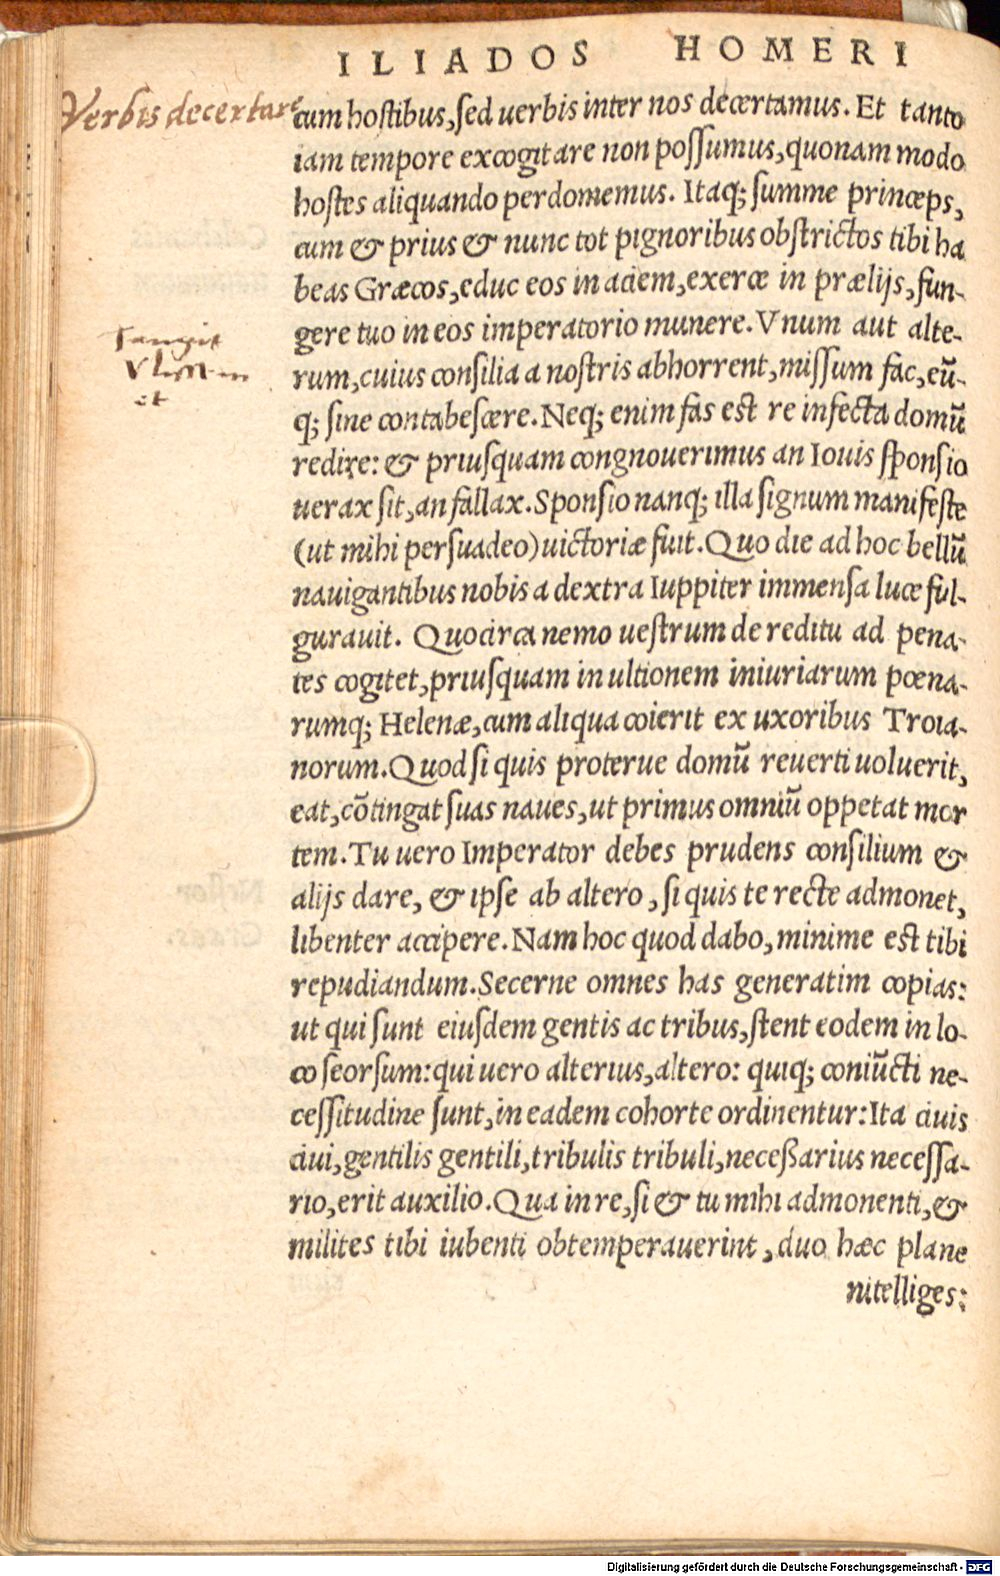 ILIADOS HOMERI
Verbis decertare
cum hostibus, sed uerbis inter nos decertamus. Et tanto
iam tempore excogitare non possumus, quonam modo
hostes aliquando perdomemus. Itaq; summe princeps,
cum & prius & nunc tot pignoribus obstrictos tibi ha
beas Græcos, educ eos in aciem, exerce in prælijs, fun-
gere tuo in eos imperatorio munere. Vnum aut alte-
rum, cuius consilia a nostris abhorrent, missum fac, eũ-
q; sine contabescere. Neq; enim fas est re infecta domũ
redire: & priusquam congnouerimus an Iouis sponsio
uerax sit, an fallax. Sponsio nanq; illa signum manifeste
(ut mihi persuadeo) uictoriæ fuit. Quo die ad hoc bellũ
nauigantibus nobis a dextra Iuppiter immensa luce ful-
gurauit. Quocirca nemo uestrum de reditu ad pena-
tes cogitet, priusquam in ultionem iniuriarum pœna-
rumq; Helenæ, cum aliqua coierit ex uxoribus Troia-
norum. Quod si quis proterue domũ reuerti uoluerit,
eat, cõtingat suas naues, ut primus omniũ oppetat mor
tem. Tu uero Imperator debes prudens consilium &
alijs dare, & ipse ab altero, si quis te recte admonet,
libenter accipere. Nam hoc quod dabo, minime est tibi
repudiandum. Secerne omnes has generatim copias:
ut qui sunt eiusdem gentis ac tribus, stent eodem in lo-
co seorsum: qui uero alterius, altero: quiq; coniũcti ne-
cessitudine sunt, in eadem cohorte ordinentur: Ita ciuis
ciui, gentilis gentili, tribulis tribuli, neceßarius necessa-
rio, erit auxilio. Qua in re, si & tu mihi admonenti, &
milites tibi iubenti obtemperauerint, duo hæc plane
nitelliges:
Digitalisierung gefördert durch die Deutsche Forschungsgemeinschaft - DFG